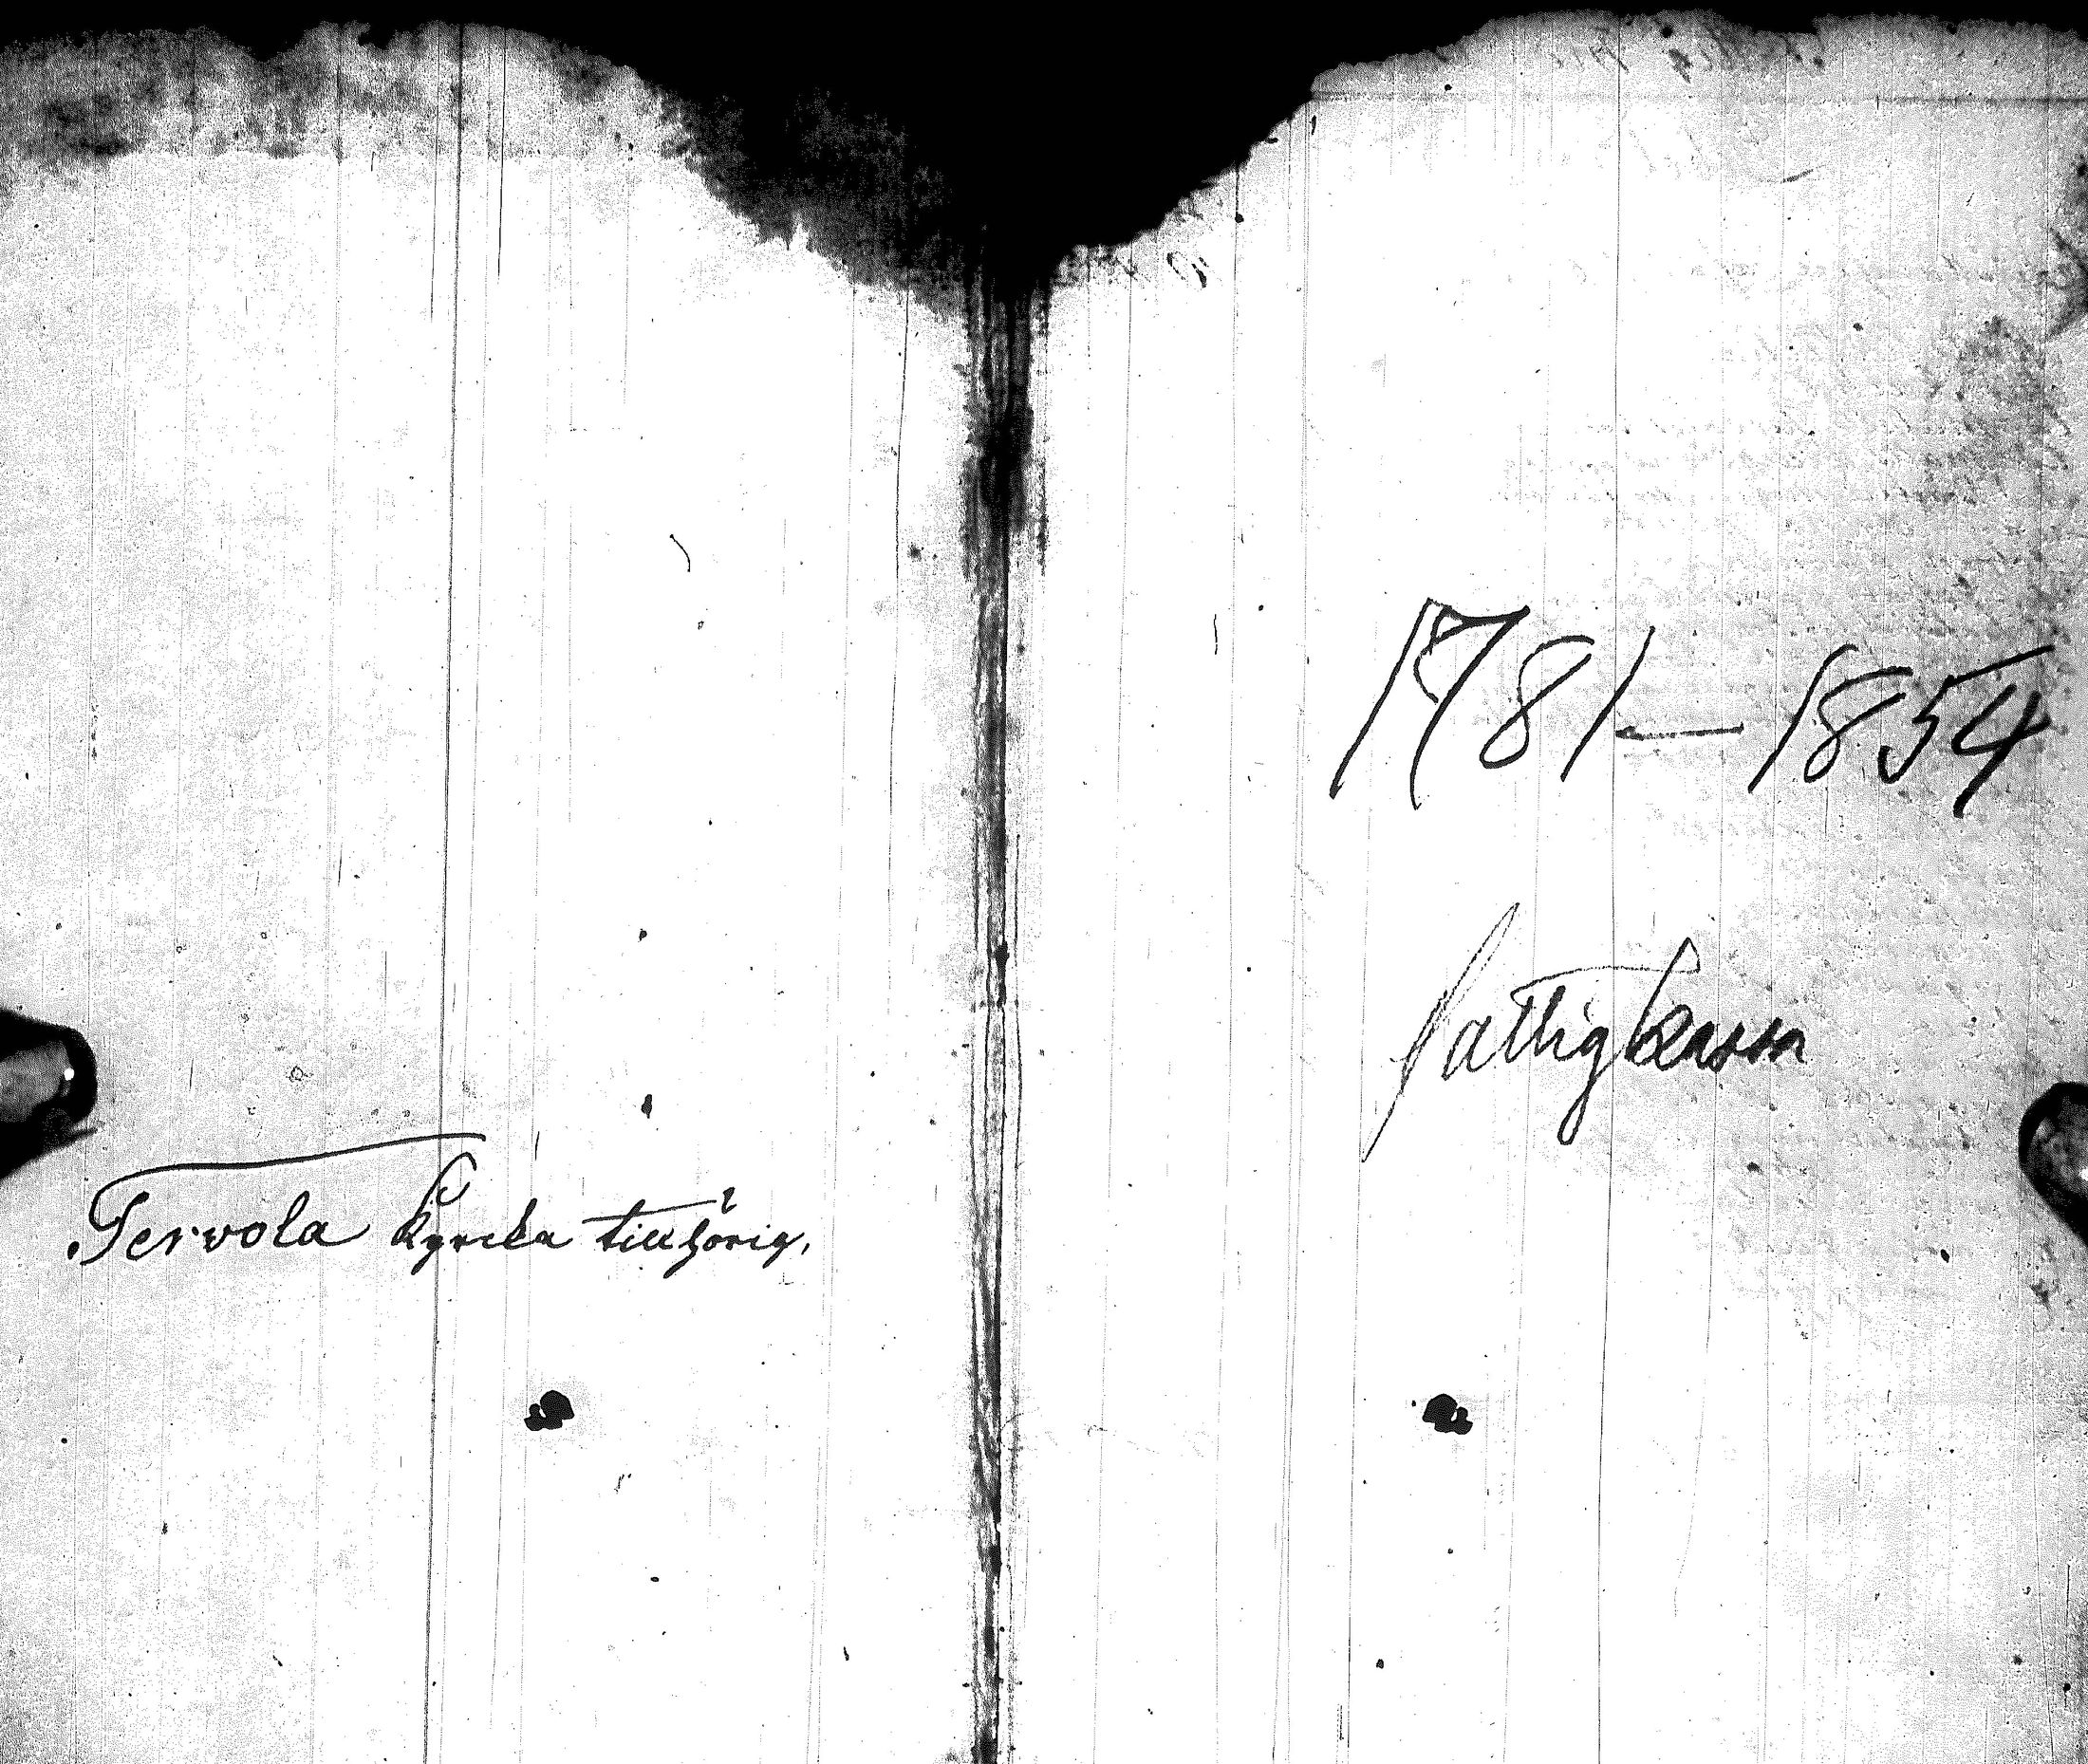 Tervola Kyrcka tillhörig.
1781—1854
fattigkassa